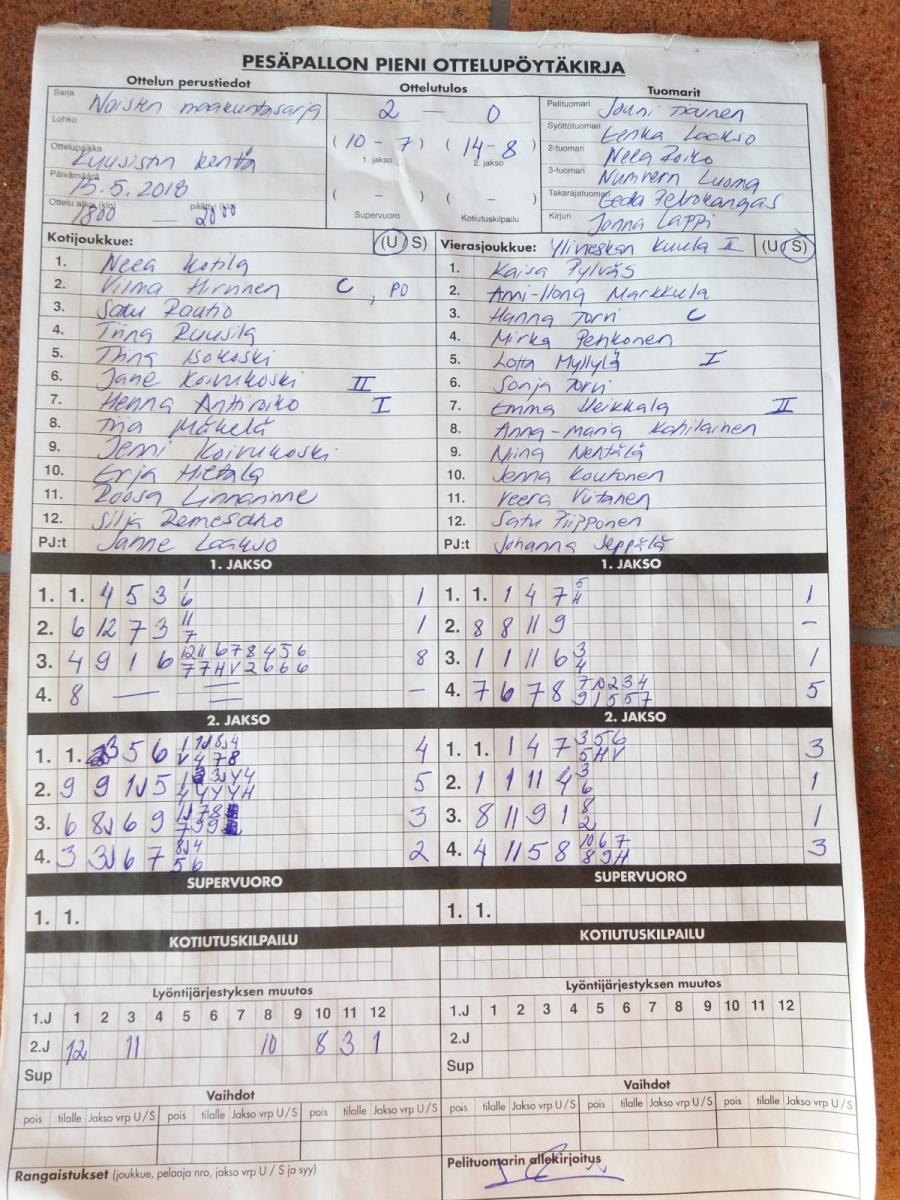 PESÄPALLON PIENI OTTELUPÖYTÄKIRJA
Ottelun perustiedot
Ottelutulos
Tuomarit
Sarja
Naisten maakuntasarja
Lohko
Ottelupaikka
Kuusiston kenttä
Päivämäärä
15.5.2018
Ottelu alkoi (klo) 1800 — päättyi (klo) 2000
2 — 0
(10 - 7) (14 - 8)
1. jakso 2. jakso
( - ) ( - )
Supervuoro Kotiutuskilpailu
Pelituomari Jouni
Syöttötuomari Eerika Laakso
2-tuomari Neea
3-tuomari Luoma
Takarajatuomari Eeda Petrokangas
Kirjuri Jonna Lappi
Kotijoukkue: (U S)
1. Neea Kotila
2. Vilma Hirvinen C, PO
3. Satu Rautio
4. Tiina Ruusila
5. Tiina Isokoski
6. Jane Koivukoski II
7. Henna Antiroiko I
8. Tiia Mäkelä
9. Jenni Koivukoski
10. Erja Hietala
11. Roosa
12. Silja
PJ:t Janne Laakso
Vierasjoukkue: Ylivieskan Kuula II (U S)
1. Kaisa Pylväs
2. Anni-Ilona Markkula
3. Hanna Torvi C
4. Mirka Penkonen
5. Lotta Myllylä I
6. Sonja Torvi
7. Emma Heikkala II
8. Anna-Maria Kahilainen
9. Niina Nentälä
10. Jenna Koutonen
11. Veera Viitanen
12. Satu Piipponen
PJ:t Johanna Seppälä
1. JAKSO
1. 1. 4 5 3 1 1
6
2. 6 12 7 3 11 1
7
3. 4 9 1 6 12 11 6 7 8 4 5 6 8
7 7 H V 2 6 6 6
4. 8 — = —
1. JAKSO
1. 1. 1 4 7 5 1
H
2. 8 8 11 9 –
3. 1 1 11 6 3 1
4
4. 7 6 7 8 7 10 2 3 4 5
9 1 5 5 7
2. JAKSO
1. 1. 5 6 4
V 4 7 8
2. 9 9 5 5
3. 6 6 9 3
4. 3 6 7 2
5 6
2. JAKSO
1. 1. 1 4 7 3 5 6 3
5 H V
2. 1 1 11 4 3 1
6
3. 8 11 9 1 8 1
2
4. 4 11 5 8 10 6 7 3
8 9 H
SUPERVUORO
1. 1.
SUPERVUORO
1. 1.
KOTIUTUSKILPAILU
KOTIUTUSKILPAILU
Lyöntijärjestyksen muutos
1.J 1 2 3 4 5 6 7 8 9 10 11 12
2.J 12 11 10 8 3 1
Sup
Lyöntijärjestyksen muutos
1.J 1 2 3 4 5 6 7 8 9 10 11 12
2.J
Sup
Vaihdot
pois tilalle Jakso vrp U / S pois tilalle Jakso vrp U / S pois tilalle Jakso vrp U / S
Vaihdot
pois tilalle Jakso vrp U / S pois tilalle Jakso vrp U / S pois tilalle Jakso vrp U / S
Rangaistukset (joukkue, pelaaja nro, jakso vrp U / S ja syy)
Pelituomarin allekirjoitus